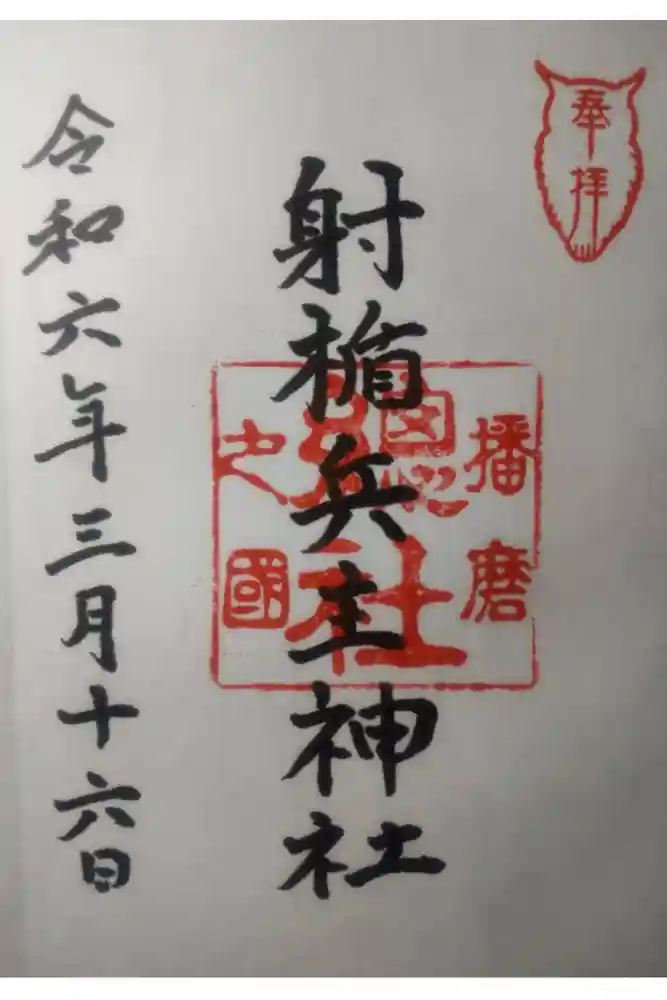 奉拝
射楯兵主神社
播磨
総社
之國
令和六年三月十六日